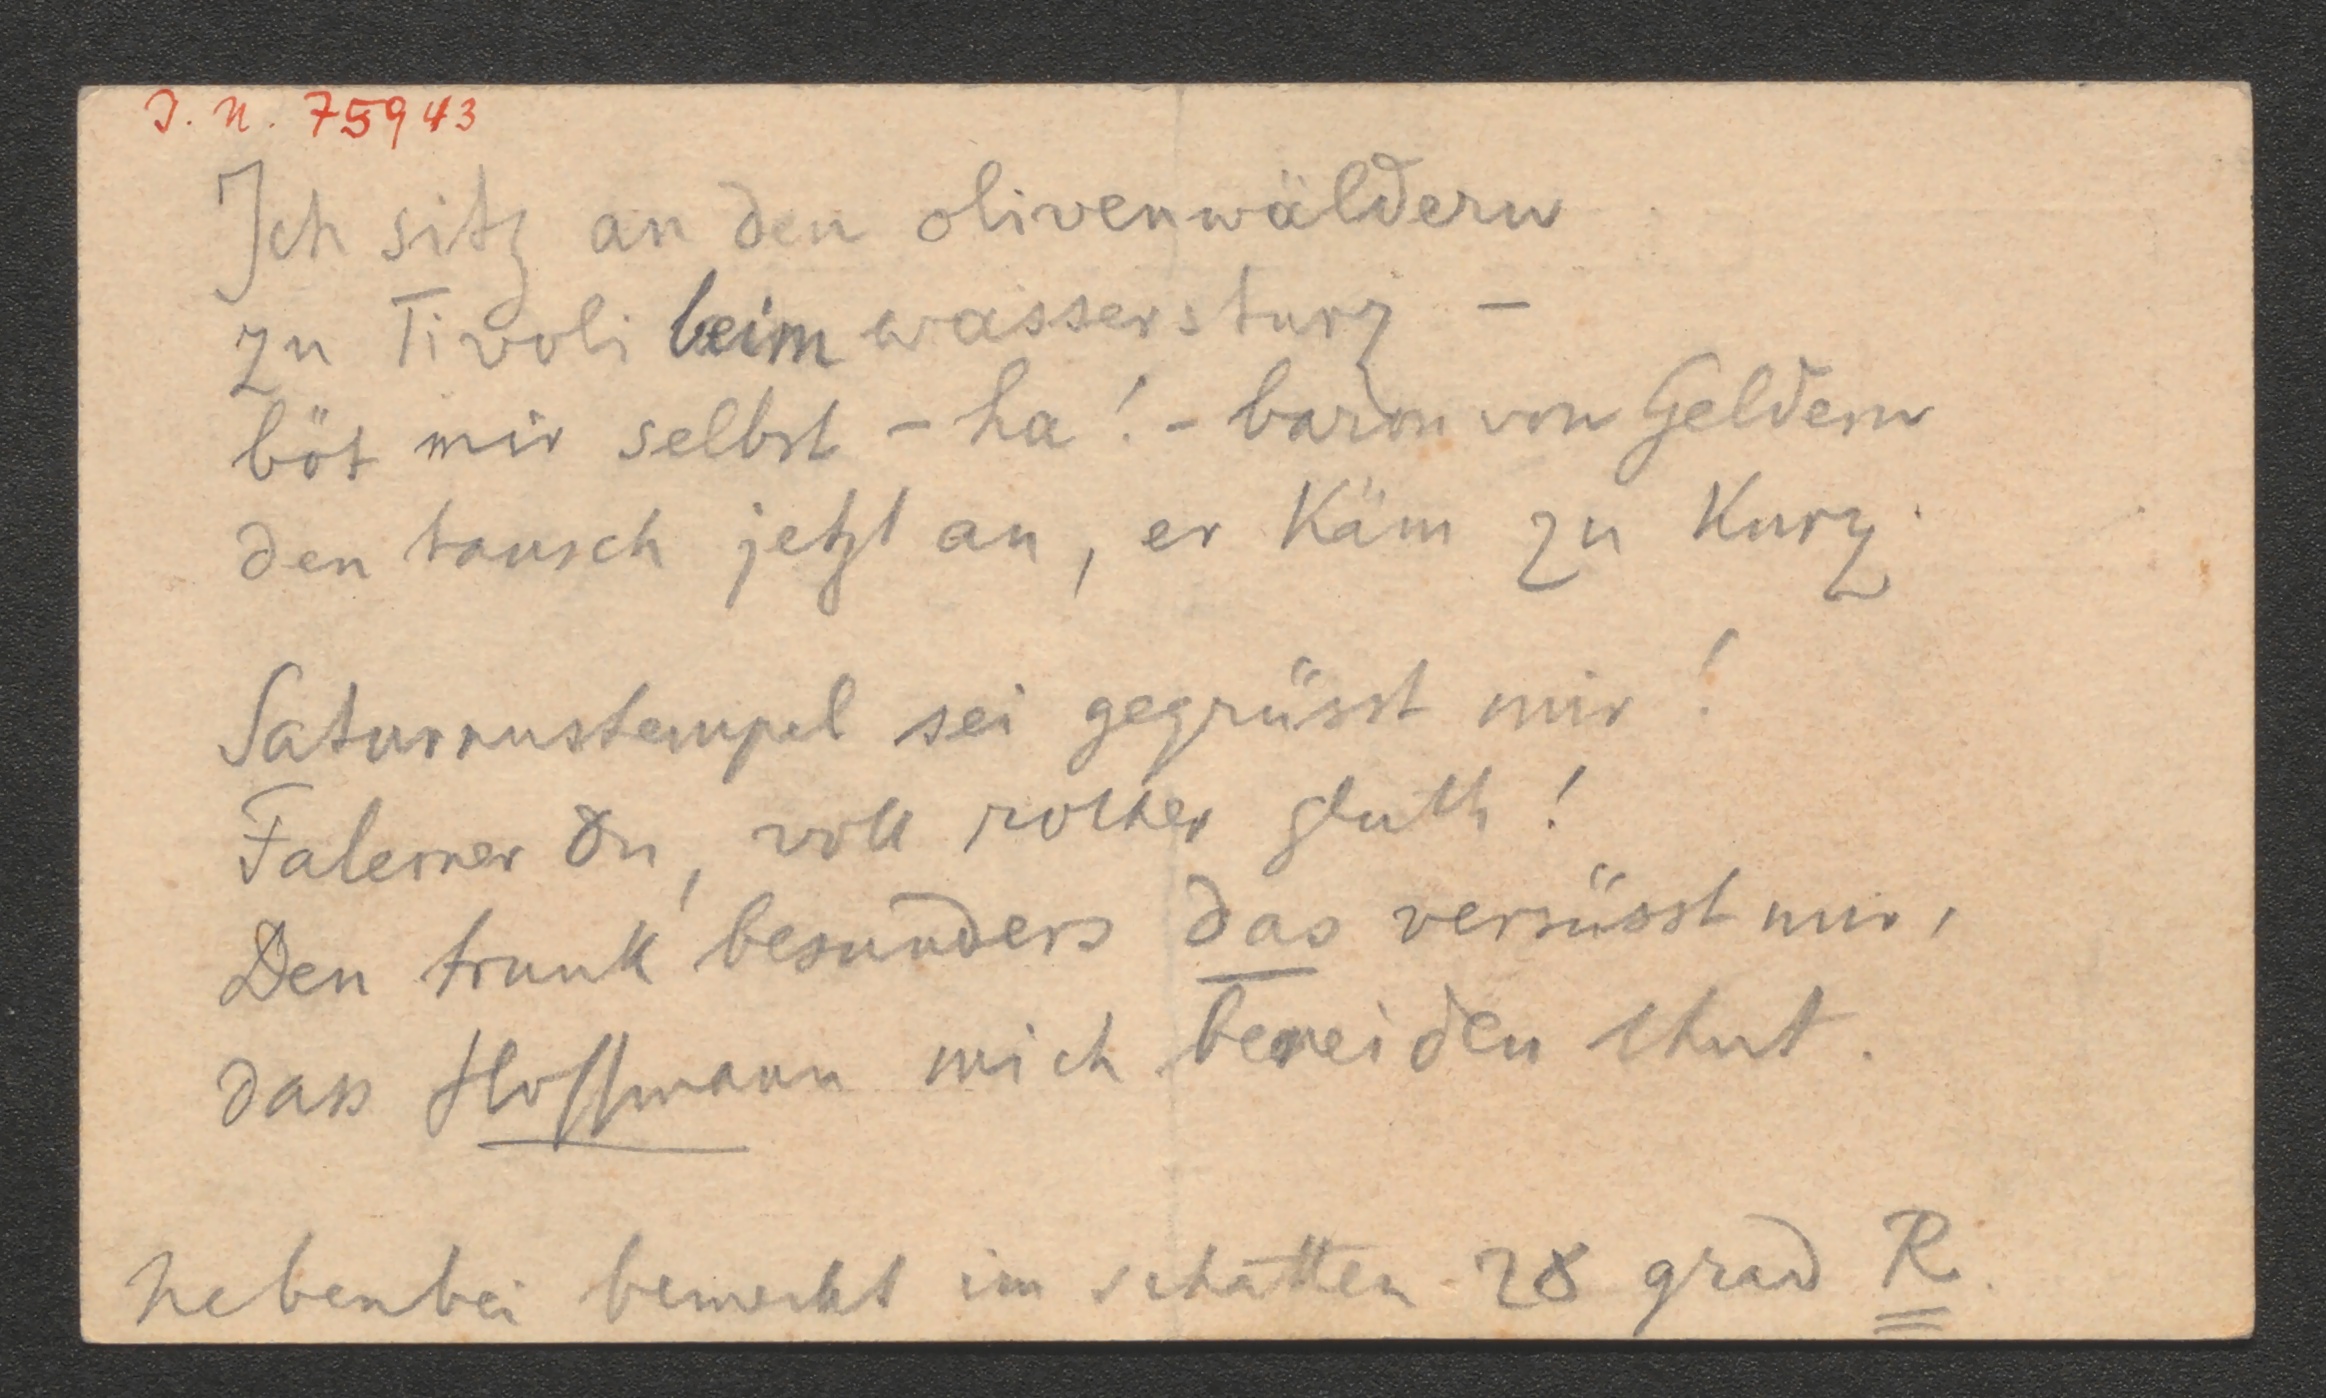 J. N. 75943
Ich sitz an den olivenwäldern
zu Tivoli beim wassersturz –
böt mir selbst – ha! – baron von Geldern
den tausch jetzt an, er käm zu kurz.
Saturnustempel sei gegrüsst mir!
Falerner du, voll rother gluth!
Den trunk besunders das versüsst mir,
dass Hoffmann mich beneiden thut.
nebenbei bemerkt im schatten 28 grad R.